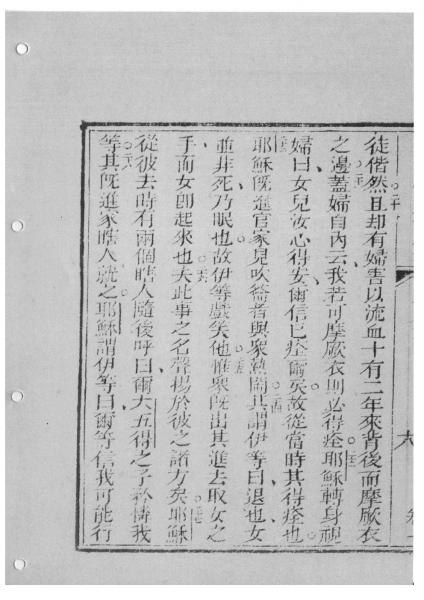 徒偕然且却有婦害以流血十有二年來背後而摩厥衣
之邊蓋婦自內云我若可摩厥衣則必得痊耶穌轉身視
婦曰女兒汝心得安爾信已痊爾矣故從當時其得痊也
耶穌既進官家見吹簫者與衆熱鬧其謂伊等曰退也女
並非死乃眠也故伊等戲笑他惟衆既出其進去取女之
手而女卽起來也夫此事之名聲揚於彼之諸方矣耶穌
從彼去時有兩個瞎人隨後呼曰爾大五得之子矜憐我
等其既進家瞎人就之耶穌謂伊等曰爾等信我可能行